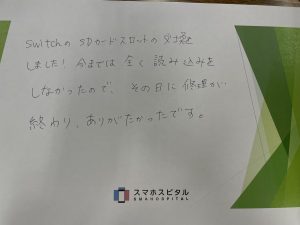 Switchの SDカードスロットの交換を
しました！今までは全く読み込みを
しなかったので、その日に修理が
終わり、ありがたかったです。
スマホスピタル
SMAHOSPITAL